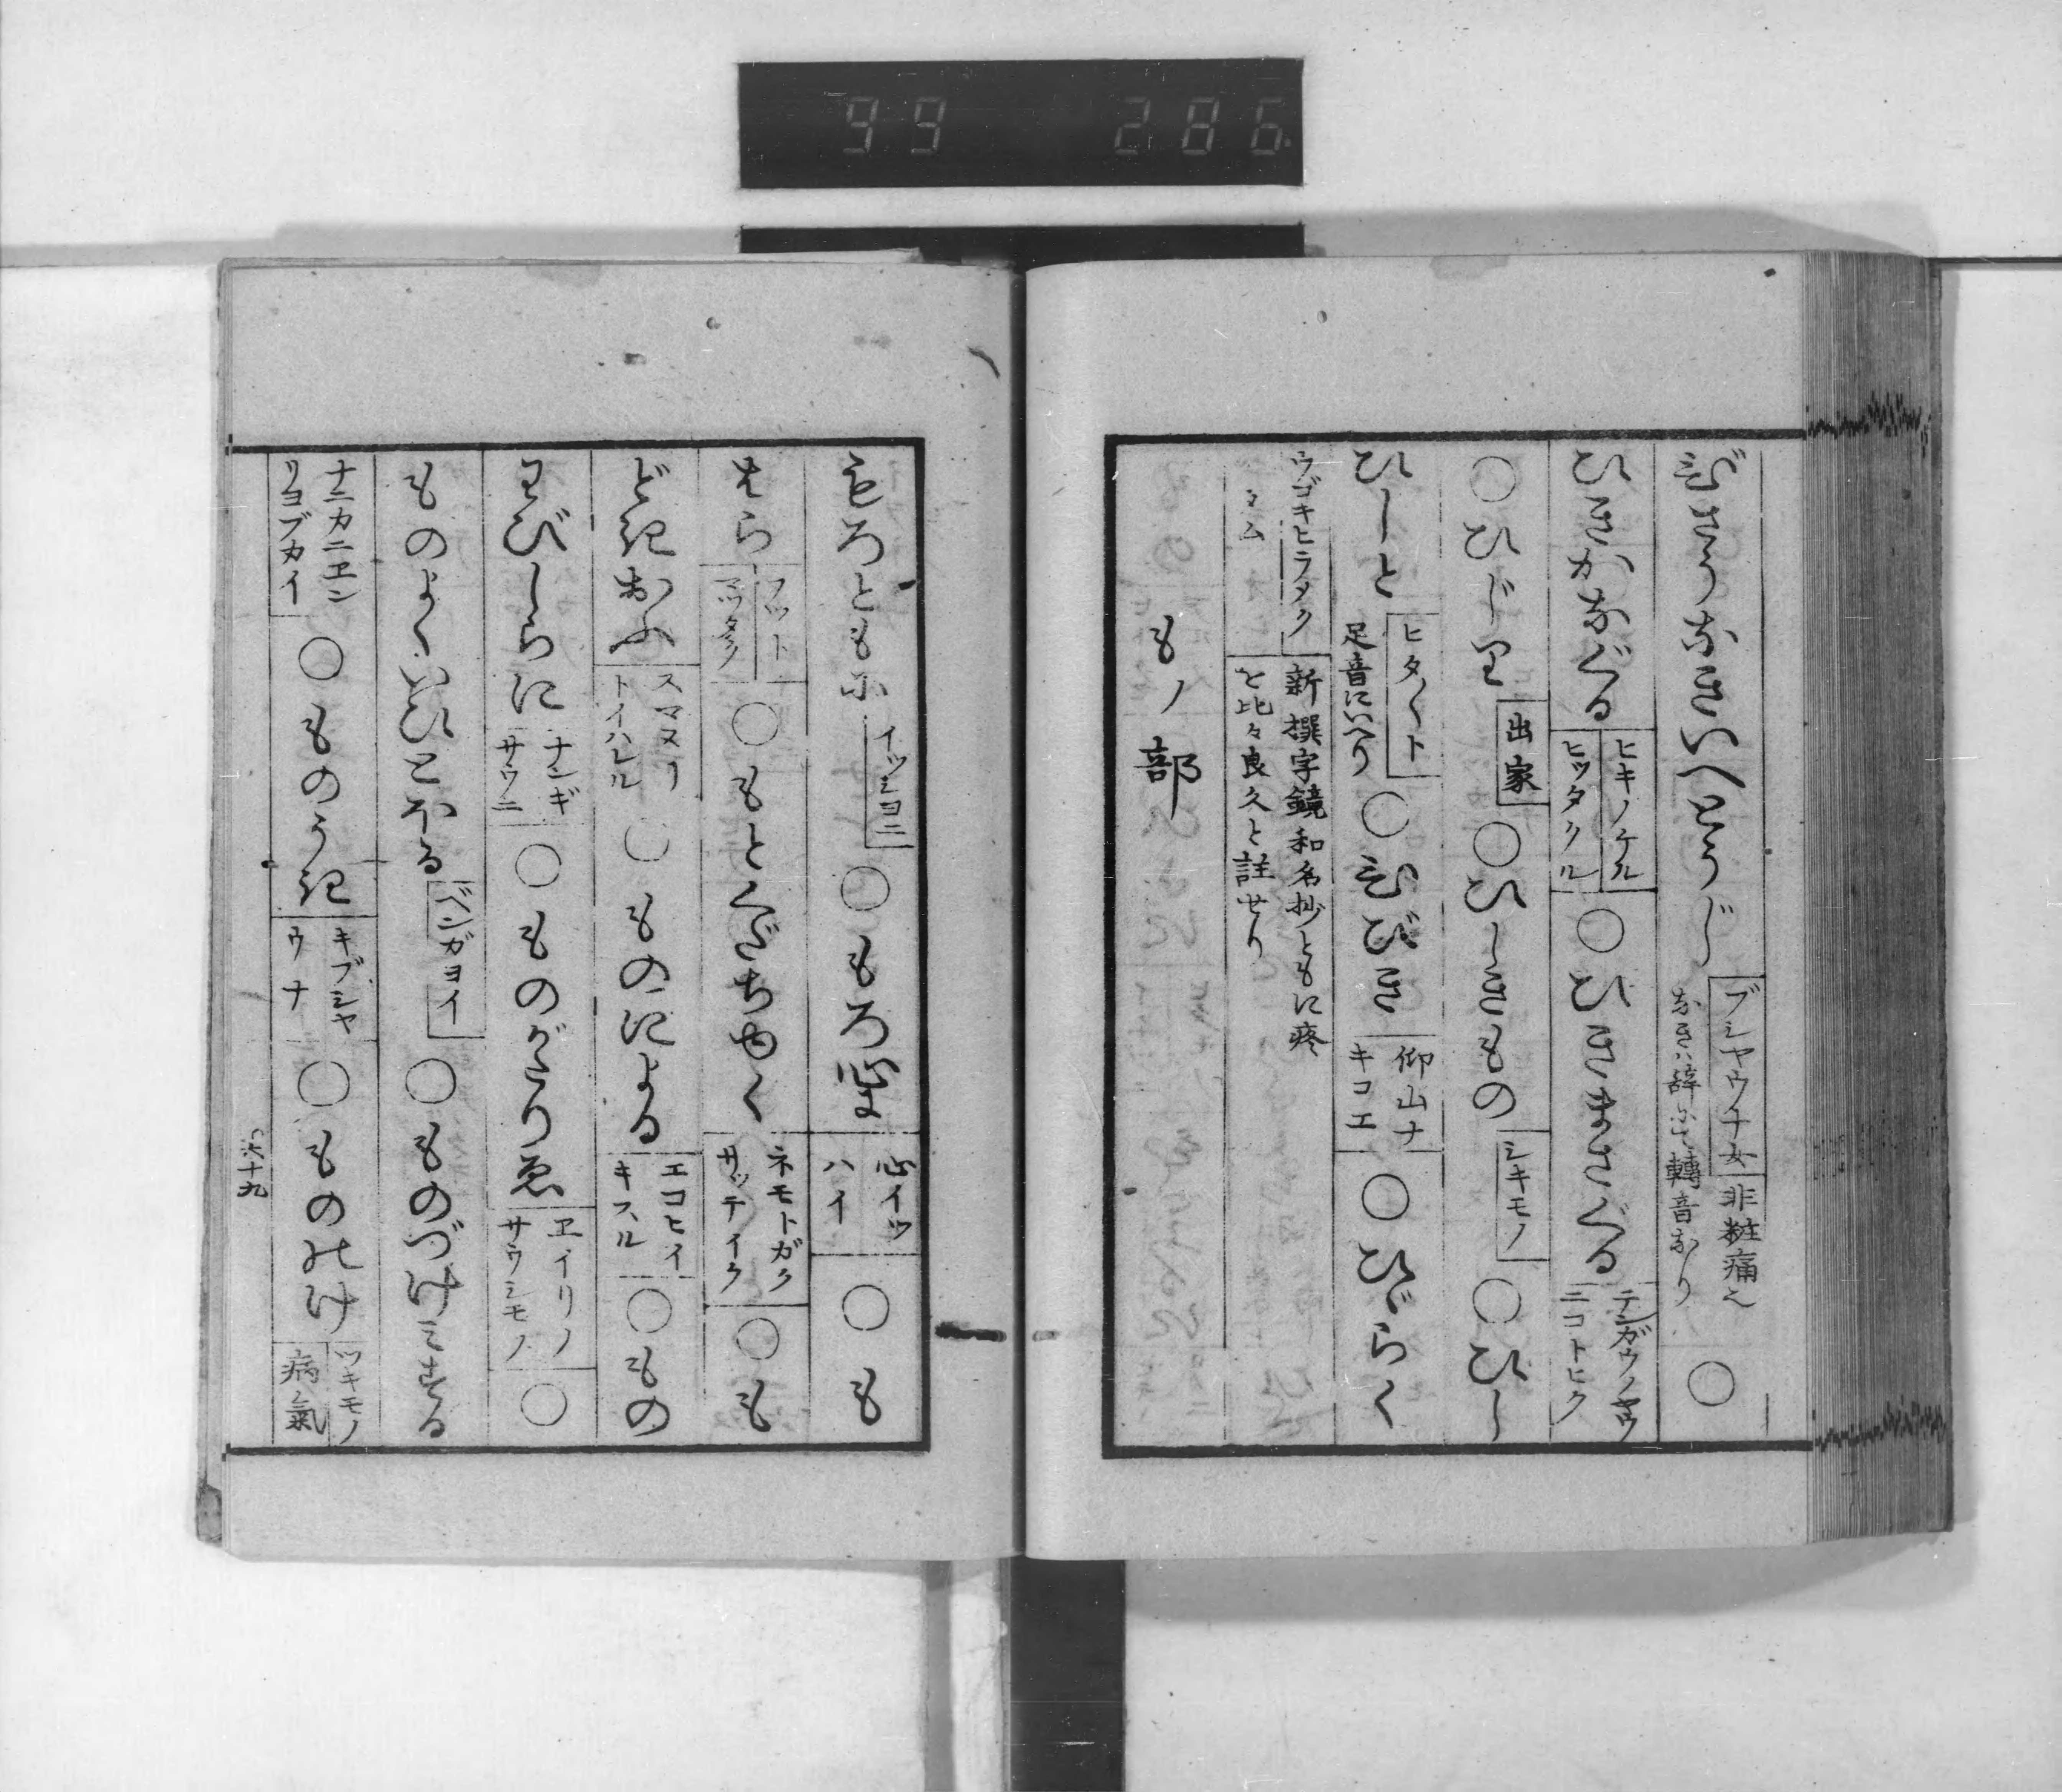 99 286
びさうなきいへとうじ ブシヤウナ女 非粧痛也 なきハ辞にて轉音なり ○
ひきかなぐる ヒキノケル ヒツタクル ○ひきまさぐる テンガウノヤウ ニコトヒク
○ひじり 出家 ○ひしきもの シキモノ ○ひし
ひしと ヒタ〱ト 足音にいへり ○ひびき 仰山ナ キコエ ○ひゞらく
ウゴキヒラメク 新撰字鏡和名抄ともに疼
を比々良久と註せり
もノ部
もろともに イツシヨニ ○もろ心に 心イツ ハイ ○も
はら フツト マツタク ○もとくだちゆく ネモトガク サツテイク ○も
どきおふ スマヌリ トイハレル ○ものによる エコヒイ キスル ○もの
わびしらに ナンギ サウニ ○ものがたりゑ ヱイリノ サウシモノ ○
ものよくいひとほる ベンガヨイ ○ものづけミする
ナニカニエン リヨブカイ ○ものうき キブシヤ ウナ ○ものゝけ ツキモノ 病氣
六十九